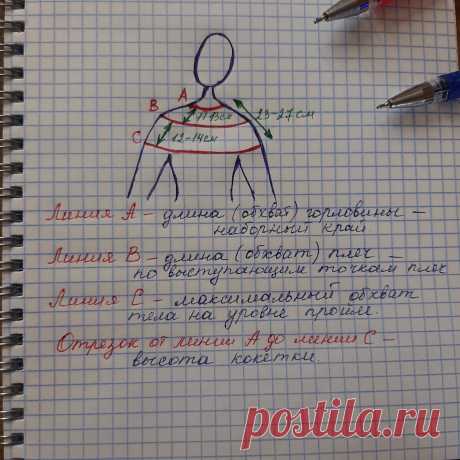 A
B
11-13см
23-27см
C
12-14см
Линия А - длина (обхват) горловины -
наборный край
Линия В - длина (обхват) плеч -
по выступающим точкам плеч
Линия С - максимальный обхват
тела на уровне пройм.
Отрезок от линии А до линии С -
высота кокетки.
postila.ru